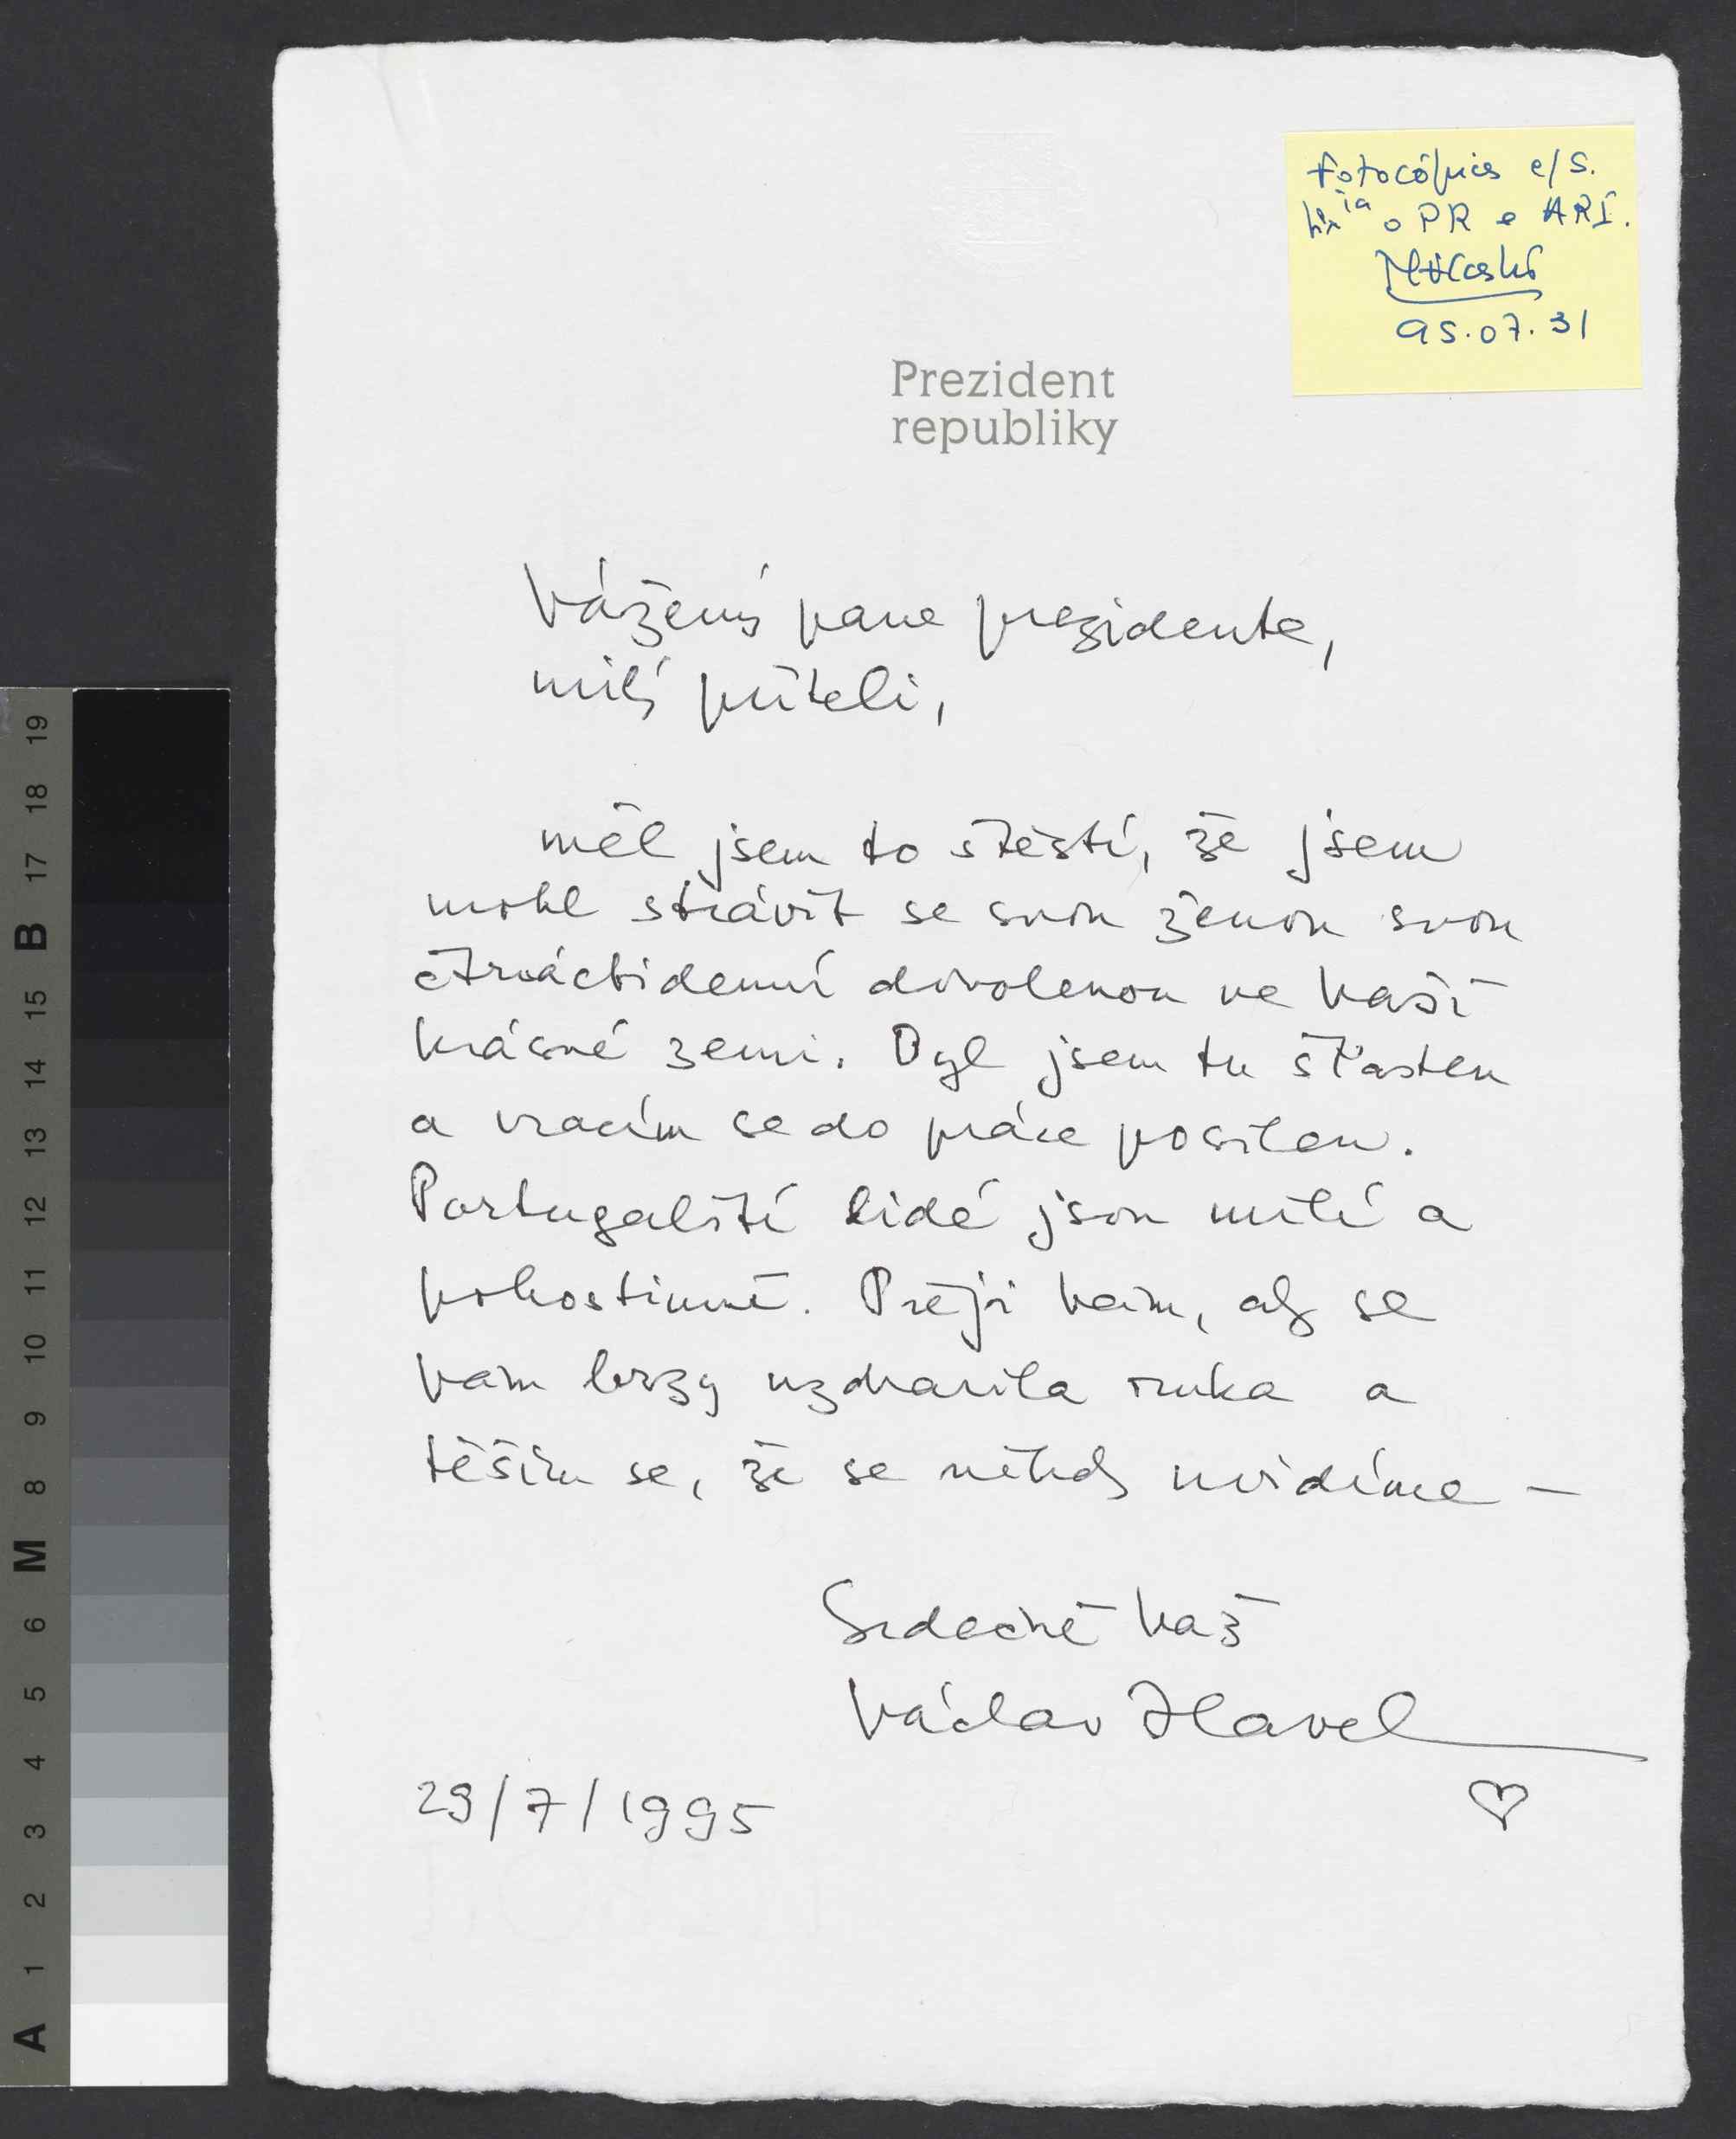 Fotocópias e/S.
o PR e ARI.
95.07.31
Prezident
republiky
Vážený pane prezidente,
milý příteli,
měl jsem to štěstí, že jsem
mohl strávit se svou ženou svou
čtrnáctidenní dovolenou ve Vaší
krásné zemi. Byl jsem tu šťasten
a vracím se do práce posilen.
Portugalští lidé jsou milí a
pohostinní. Přeji Vám, aby se
Vám brzy uzdravila ruka a
těším se, že se někdy uvidíme –
Srdečně Váš
Václav Havel
29/7/1995
19
18
17
B
15
14
13
12
11
10
9
8
M
6
5
4
3
2
1
A